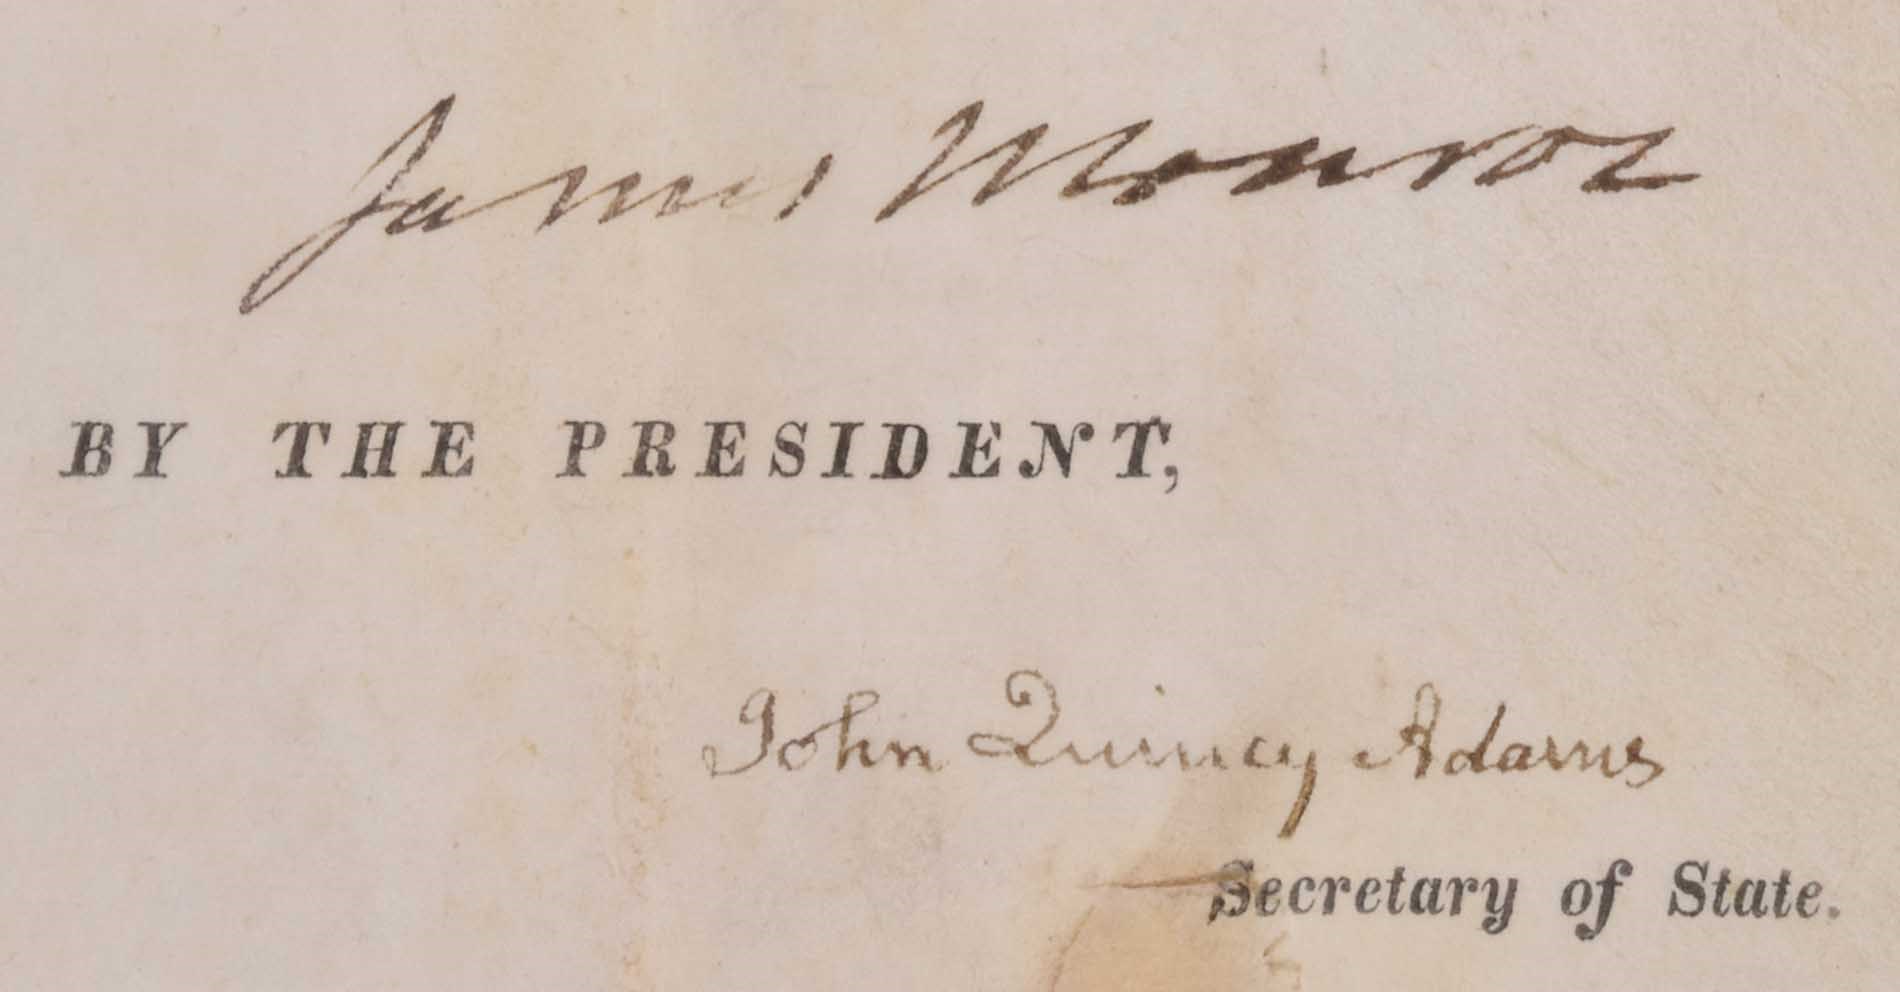 James Monroe
BY THE PRESIDENT,
John Quincy Adams
Secretary of State.